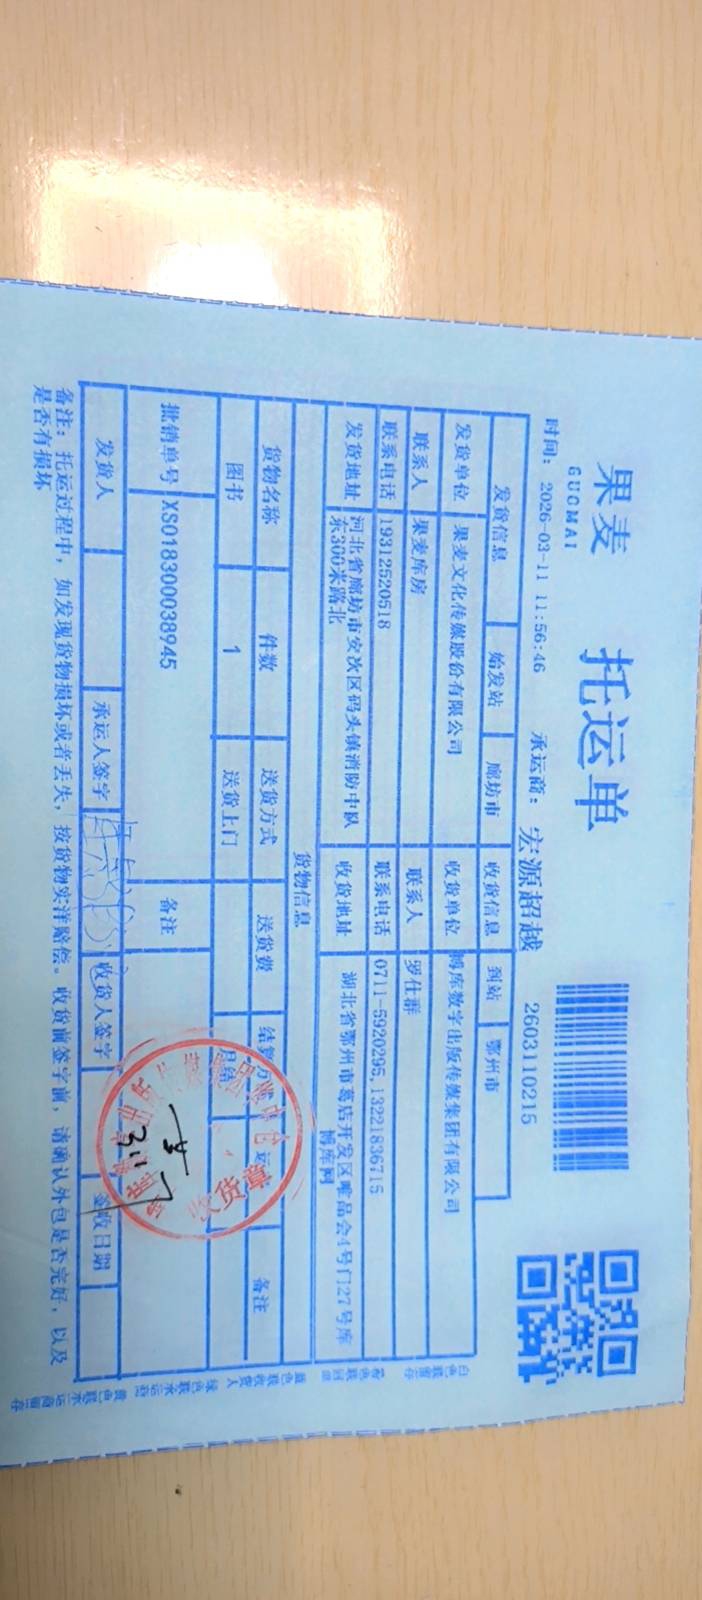 果麦 托运单
GUOMAI
时间: 2026-03-11 11:56:46 承运商: 宏源超越 2603110215
发货信息 始发站 廊坊市 收货信息 到站 鄂州市
发货单位 果麦文化传媒股份有限公司 收货单位 博库数字出版传媒集团有限公司
联系人 果麦库房 联系人 罗仕群
联系电话 19312520518 联系电话 0711-5920295,13221836715
发货地址 河北省廊坊市安次区码头镇消防中队东300米路北 收货地址 湖北省鄂州市葛店开发区唯品会4号门27号库博库网
货物信息
货物名称 件数 送货方式 送货费 结算方式 运 备注
图书 1 送货上门 月结
批销单号 XS018300038945 备注
发货人 承运人签字 收货人签字 签收日期
收货章
3.11
备注: 托运过程中, 如发现货物损坏或者丢失, 按货物实洋赔偿。收货前签字前, 请确认外包是否完好, 以及
是否有损坏
白色联留存 粉色联回单 蓝色联收货人 绿色联承运商 黄色联承运商留存